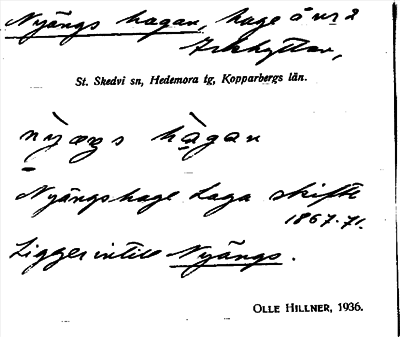 Nyängs hagan, hage å nr 2
Arkhyttan,
St. Skedvi sn, Hedemora tg, Kopparbergs län.
nỳæŋs hàgan
Nyängshage Laga skifte
1867-71.
Ligger intill Nyängs.
OLLE HILLNER, 1936.